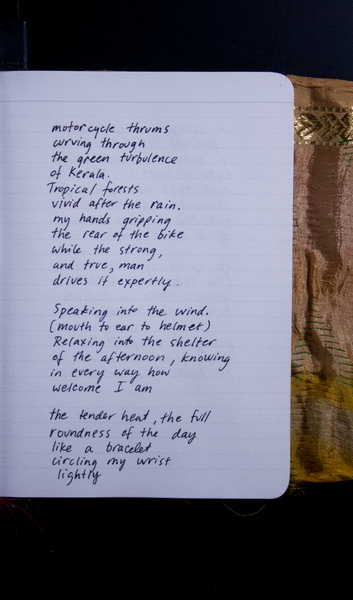 motorcycle thrums
curving through
the green turbulence
of Kerala.
Tropical forests
vivid after the rain.
my hands gripping
the rear of the bike
while the strong,
and true, man
drives it expertly.
Speaking into the wind.
(mouth to ear to helmet)
Relaxing into the shelter
of the afternoon, knowing
in every way how
welcome I am
the tender heat, the full
roundness of the day
like a bracelet
circling my wrist
lightly